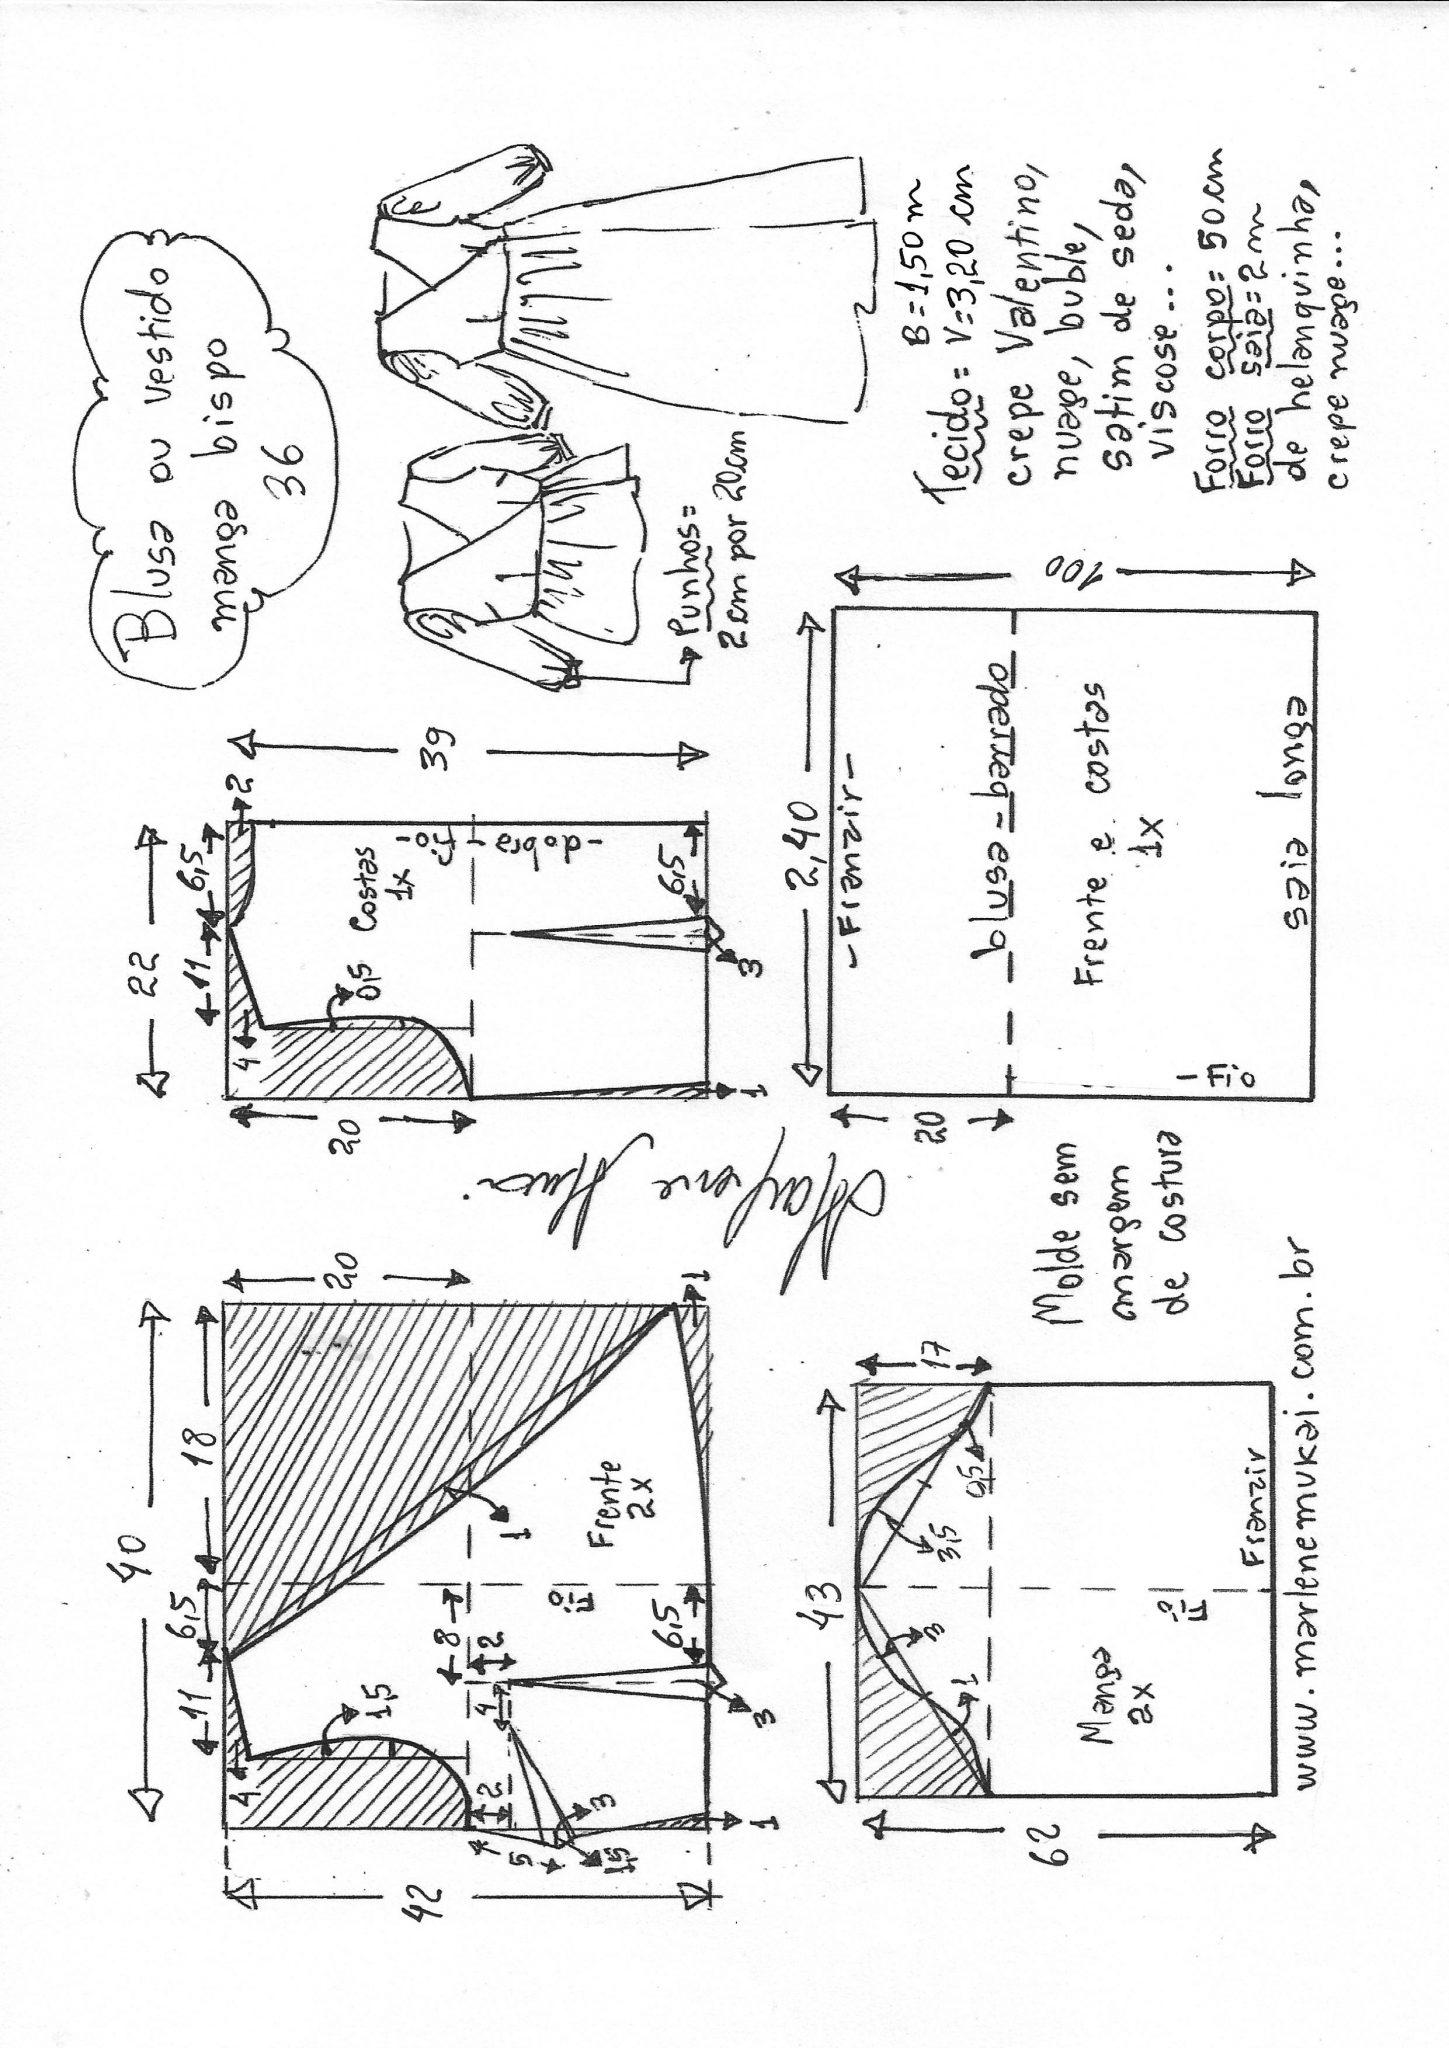 Blusa ou vestido
manga bispo
36
40
11
6,5
18
20
4
1,5
1
8
2
4
2
5
3
1,5
6,5
3
1
1
42
Frente
2x
Fio
22
11
6,5
2
4
0,5
20
39
Costas
1x
Fio
-dobra-
6,5
3
1
Punhos=
2cm por 20cm
Marlene Mukai
43
17
62
3
1
3,5
0,5
Manga
2x
Fio
Franzir
Molde sem
margem
de costura
www.marlenemukai.com.br
2,40
-Franzir-
20
100
blusa-barrado
Frente e costas
1x
-Fio
saia longa
B=1,50m
Tecido= V=3,20 cm
crepe Valentino,
nuage, buble,
satim de seda,
viscose...
Forro corpo= 50cm
Forro saia=2m
de helanquinha,
crepe nuage...